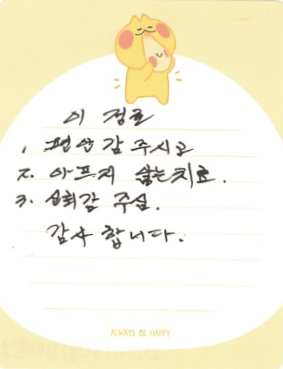 이
1, 편안감 주시고
2. 아프지 않는 치료.
3. 신뢰감 주심.
감사 합니다.
ALWAYS BE HAPPY